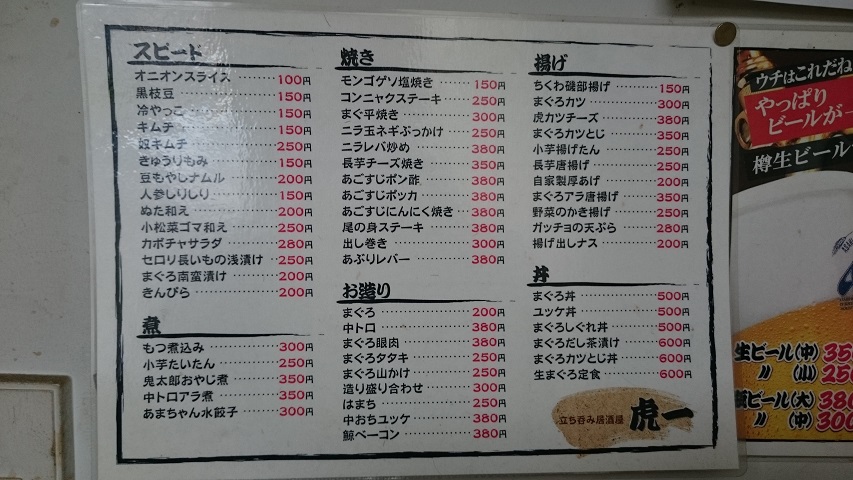 スピード
オニオンスライス 100円
黒枝豆 150円
冷やっこ 150円
キムチ 150円
奴キムチ 250円
きゅうりもみ 150円
豆もやしナムル 200円
人参しりしり 150円
ぬた和え 200円
小松菜ゴマ和え 250円
カボチャサラダ 280円
セロリ長いもの浅漬け 250円
まぐろ南蛮漬け 280円
きんぴら 200円
煮
もつ煮込み 300円
小芋たいたん 250円
鬼太郎おやじ煮 350円
中トロアラ煮 350円
あまちゃん水餃子 300円
焼き
モンゴゲソ塩焼き 150円
コンニャクステーキ 250円
まぐ平焼き 300円
ニラ玉ネギぶっかけ 250円
ニラレバ炒め 380円
長芋チーズ焼き 350円
あごすじポン酢 380円
あごすじポッカ 380円
あごすじにんにく焼き 380円
尾の身ステーキ 380円
出し巻き 300円
あぶりレバー 380円
お造り
まぐろ 200円
中トロ 380円
まぐろ眼肉 380円
まぐろタタキ 250円
まぐろ山かけ 250円
造り盛り合わせ 300円
はまち 250円
中おちユッケ 380円
鯨ベーコン 380円
揚げ
ちくわ磯部揚げ 150円
まぐろカツ 300円
虎カツチーズ 380円
まぐろカツとじ 350円
小芋揚げたん 250円
長芋唐揚げ 250円
自家製厚あげ 200円
まぐろアラ唐揚げ 350円
野菜のかき揚げ 250円
ガッチョの天ぷら 280円
揚げ出しナス 200円
丼
まぐろ丼 500円
ユッケ丼 500円
まぐろしぐれ丼 500円
まぐろだし茶漬け 600円
まぐろカツとじ丼 600円
生まぐろ定食 600円
立ち呑み居酒屋 虎一
ウチはこれだね
やっぱり
ビールが
樽生ビール
生ビール(中) 35
〃 (小) 25
ビール(大) 38
〃 (中) 30